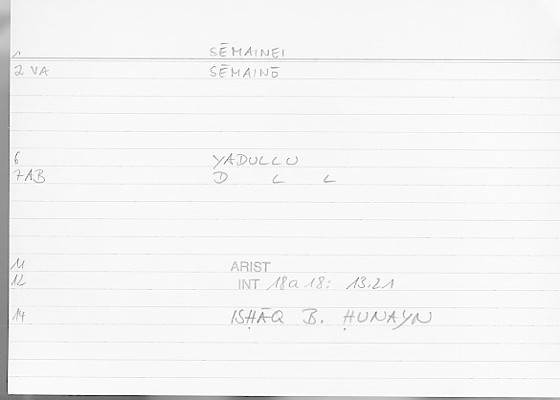 1 SĒMAINEI
2 VA SĒMAINŌ
6 YADULLU
7AB D L L
11 ARIST
12 INT 18a18: 13.21
14 ISḤĀQ B. ḤUNAYN